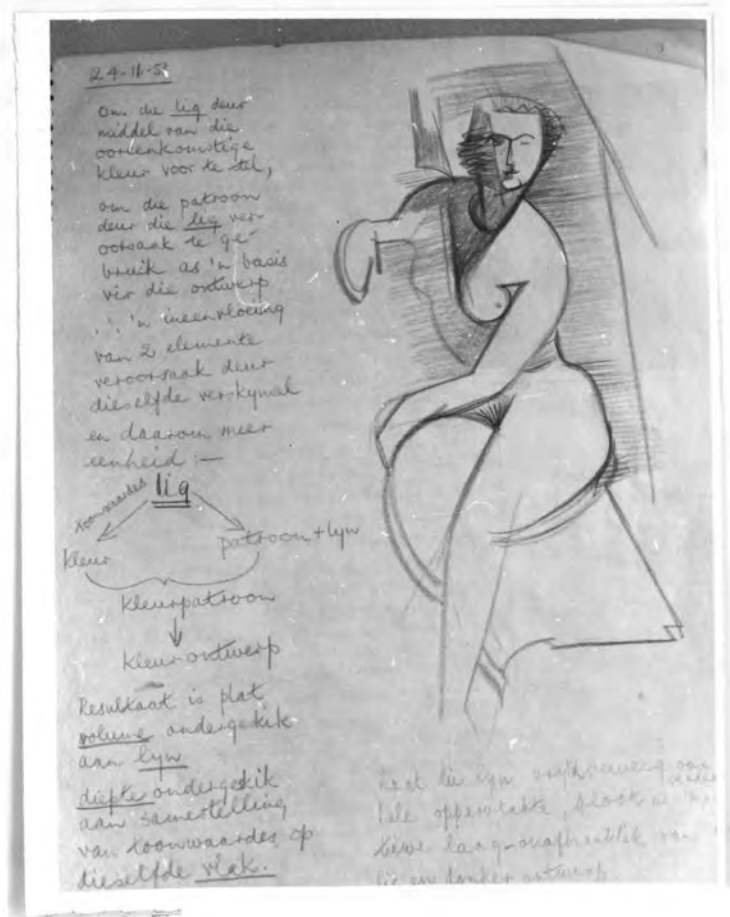 24-11-5
Om die lig deur
middel van die
ooreenkomstige
kleur voor te stel,
om die patroon
deur die lig ver-
oorsaak te ge-
bruik as 'n basis
vir die ontwerp
∴ 'n ineenvloeiing
van 2 elemente
veroorsaak deur
dieselfde verskynsel
en daarom meer
eenheid :—
lig
toonwaardes
kleur
patroon + lyn
kleurpatroon
kleur-ontwerp
Resultaat is plat
volume ondergeskik
aan lyn
diepte ondergeskik
aan samestelling
van toonwaardes op
dieselfde vlak.
Laat die lyn oor
hele oppervlakte,
laag-onafhanklik van
lig en donker ontwerp.